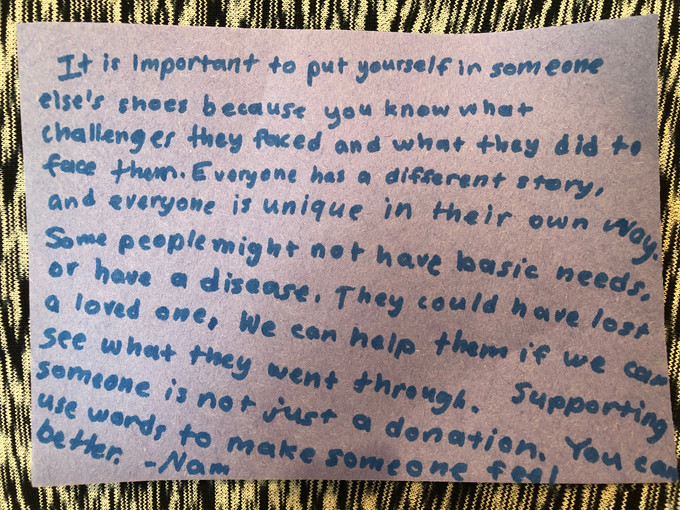 It is Important to put yourself in someone
else's shoes because you know what
challenges they faced and what they did to
face them. Everyone has a different story,
and everyone is unique in their own way.
Some people might not have basic needs,
or have a disease. They could have lost
a loved one, We can help them if we can
see what they went through. Supporting
someone is not just a donation. You can
use words to make someone feel
better. -Nam